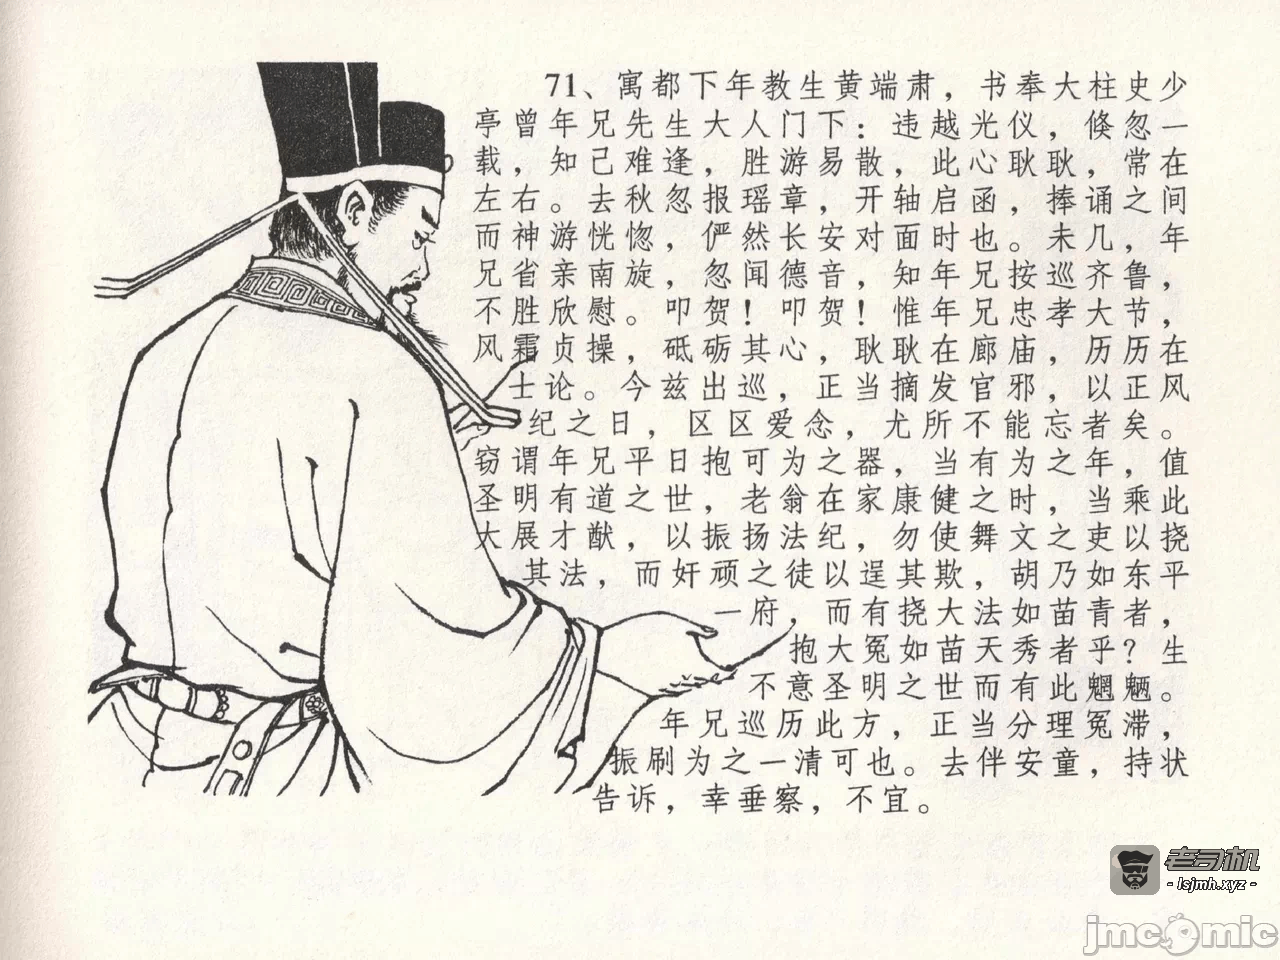 71、寓都下年教生黄端肃，书奉大柱史少
亭曾年兄先生大人门下：违越光仪，倏忽一
载，知己难逢，胜游易散，此心耿耿，常在
左右。去秋忽报瑶章，开轴启函，捧诵之间
而神游恍惚，俨然长安对面时也。未几，年
兄省亲南旋，忽闻德音，知年兄按巡齐鲁，
不胜欣慰。叩贺！叩贺！惟年兄忠孝大节，
风霜贞操，砥砺其心，耿耿在廊庙，历历在
士论。今兹出巡，正当摘发官邪，以正风
纪之日，区区爱念，尤所不能忘者矣。
窃谓年兄平日抱可为之器，当有为之年，值
圣明有道之世，老翁在家康健之时，当乘此
大展才猷，以振扬法纪，勿使舞文之吏以挠
其法，而奸顽之徒以逞其欺，胡乃如东平
一府，而有挠大法如苗青者，
抱大冤如苗天秀者乎？生
不意圣明之世而有此魍魉。
年兄巡历此方，正当分理冤滞，
振刷为之一清可也。去伴安童，持状
告诉，幸垂察，不宜。
老司机
- lsjmh.xyz -
jmcomic